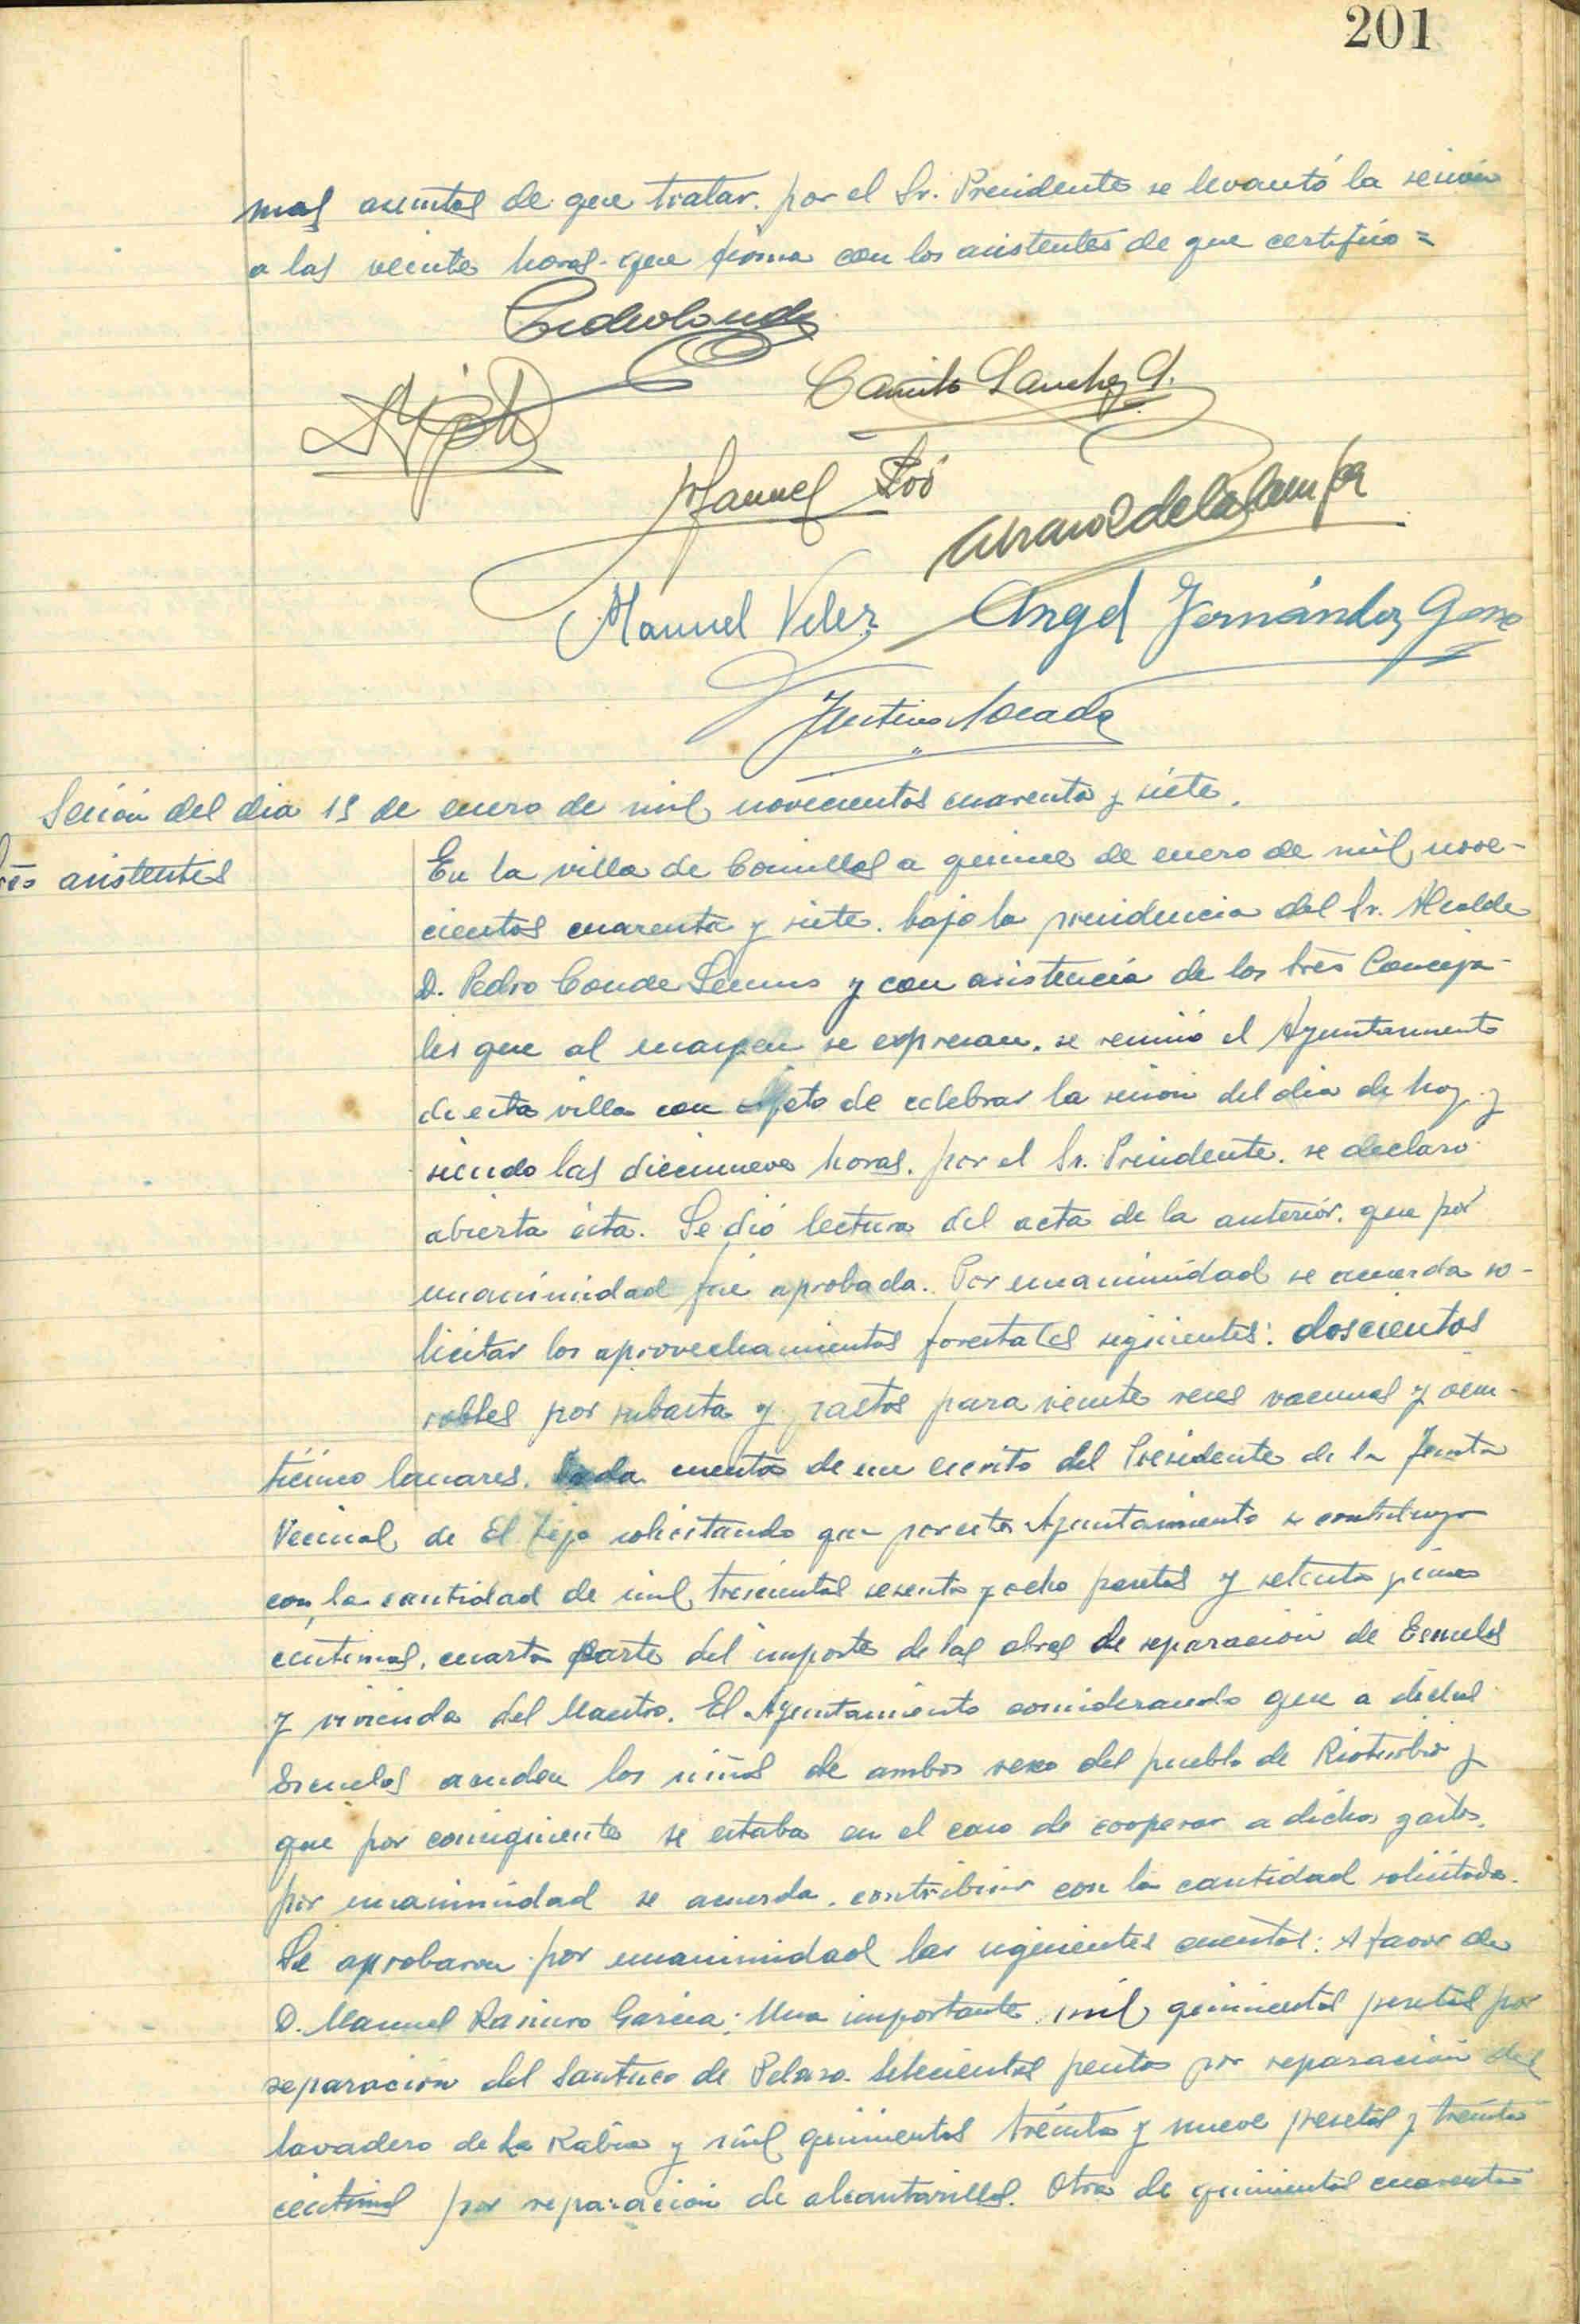 201
mas asuntos de que tratar. por el Sr. Presidente se levantó la sesión
a las veinte horas. que firma con los asistentes de que certifico =
Camilo Sanchez G.
Manuel
Manuel Velez Angel Fernández
Justino
Sesión del dia 15 de enero de mil novecientos cuarenta y siete.
asistentes
En la villa de Comillas a quince de enero de mil nove-
cientos cuarenta y siete. bajo la presidencia del Sr. Alcalde
D. Pedro Conde Lemus y con asistencia de los tres Conceja-
les que al margen se expresan. se reunió el Ayuntamiento
de esta villa con objeto de celebrar la sesión del dia de hoy y
siendo las diecinueve horas. por el Sr. Presidente. se declaro
abierta ésta. Se dió lectura del acta de la anteriór. que por
unanimidad fue aprobada. Por unanimidad se acuerda so-
licitar los aprovechamientos forestales siguientes: doscientos
robles por subasta y pastos para veinte reses vacunas y vein-
ticinco lanares. Dada cuenta de un escrito del Presidente de la Junta
Vecinal de El Tejo solicitando que por este Ayuntamiento se contribuya
con la cantidad de mil trescientas sesenta y ocho pesetas y setenta y cinco
centimos. cuarta parte del importe de las obras de reparación de Escuelas
y vivienda del Maestro. El Ayuntamiento considerando que a dichas
Escuelas acuden los niños de ambos sexo del pueblo de Rioturbio y
que por consiguiente se estaba en el caso de cooperar a dichos gastos.
por unanimidad se acuerda. contribuir con la cantidad solicitada.
Se aprobaron por unanimidad las siguientes cuentas: A favor de
D. Manuel Ramiro Garcia: Una importante mil quinientas pesetas por
reparación del Santuco de Setecientas pesetas por reparación del
lavadero de La Rabia y mil quinientas treinta y nueve pesetas y treinta
centimos por reparación de alcantarillas. Otra de quinientas cuarenta